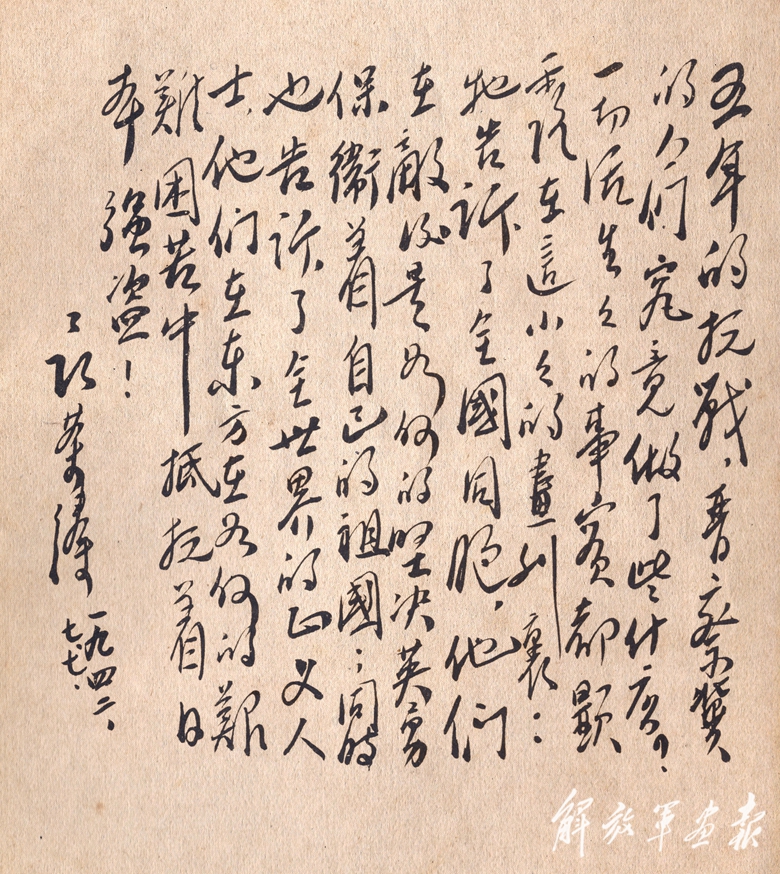 五年的抗战，晋察冀
的人们究竟做了些什麽？
一切活生生的事实都显
露在这小小的画刊裏：
它告诉了全国同胞，他们
在敌後是如何的坚决英勇
保衛着自己的祖國；同时
也告诉了全世界的正义人
士，他们在东方在如何的艱
難困苦中抵抗着日
本強盗！
聂荣臻
一九四二、
七、七、
解放军画报